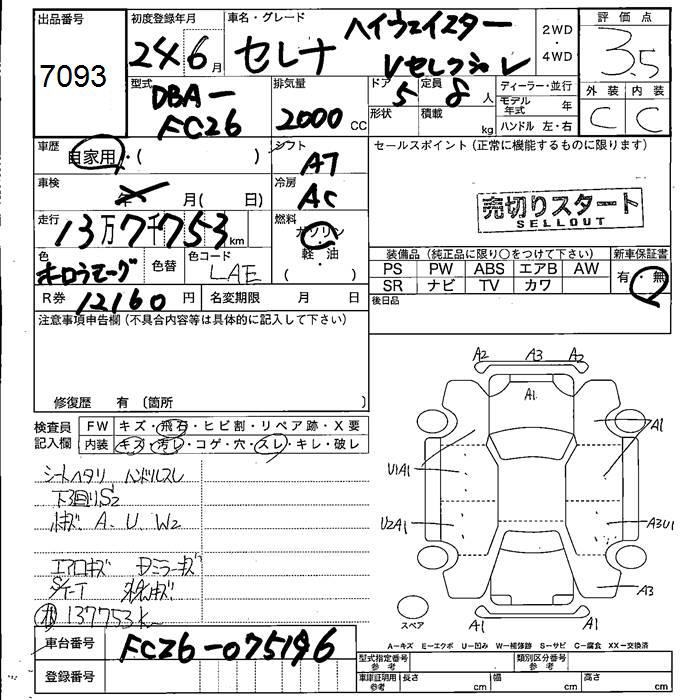 出品番号 初度登録年月 車名・グレード 2WD・4WD 評価点
7093 24 6月 セレナ ハイウェイスター Vセレクション 3.5
型式 DBA-FC26 排気量 2000 CC ドア 5 定員 8人 ディーラー・並行 外装 内装
形状 積載 kg モデル年式 年 C C
ハンドル 左・右
車歴 自家用・( ) シフト AT セールスポイント(正常に機能するものに限ります)
車検 年 月( 日) 冷房 AC
売切りスタート
SELLOUT
走行 13万7千753km 燃料 ガソリン・(軽・油)
色 色替 色コード LAE
装備品(純正品に限り○をつけて下さい) 新車保証書
PS PW ABS エアB AW 有 無
SR ナビ TV カワ
R券 12160円 名変期限 月 日 後日品
注意事項申告欄(不具合内容等は具体的に記入して下さい)
修復歴 有〔箇所 〕
検査員記入欄 FW キズ・飛石・ヒビ割・リペア跡・X要
内装 キズ・汚レ・コゲ・穴・スレ・キレ・破レ
シートヘタリ ハンドルスレ
下廻りS2
小キズ A、U、W2
エアロキズ Dミラーキズ
137753k
A2 A3 A2
A1
A1
U1A1
U2A1
A3U1
A3
A1 A1
スペア
A-キズ E-エクボ U-凹み W-補修跡 S-サビ C-腐食 XX-交換済
車台番号 FC26-075196
登録番号
型式指定番号 参考 類別区分番号 参考
車庫証明用 参考 長さ cm 幅 cm 高さ cm